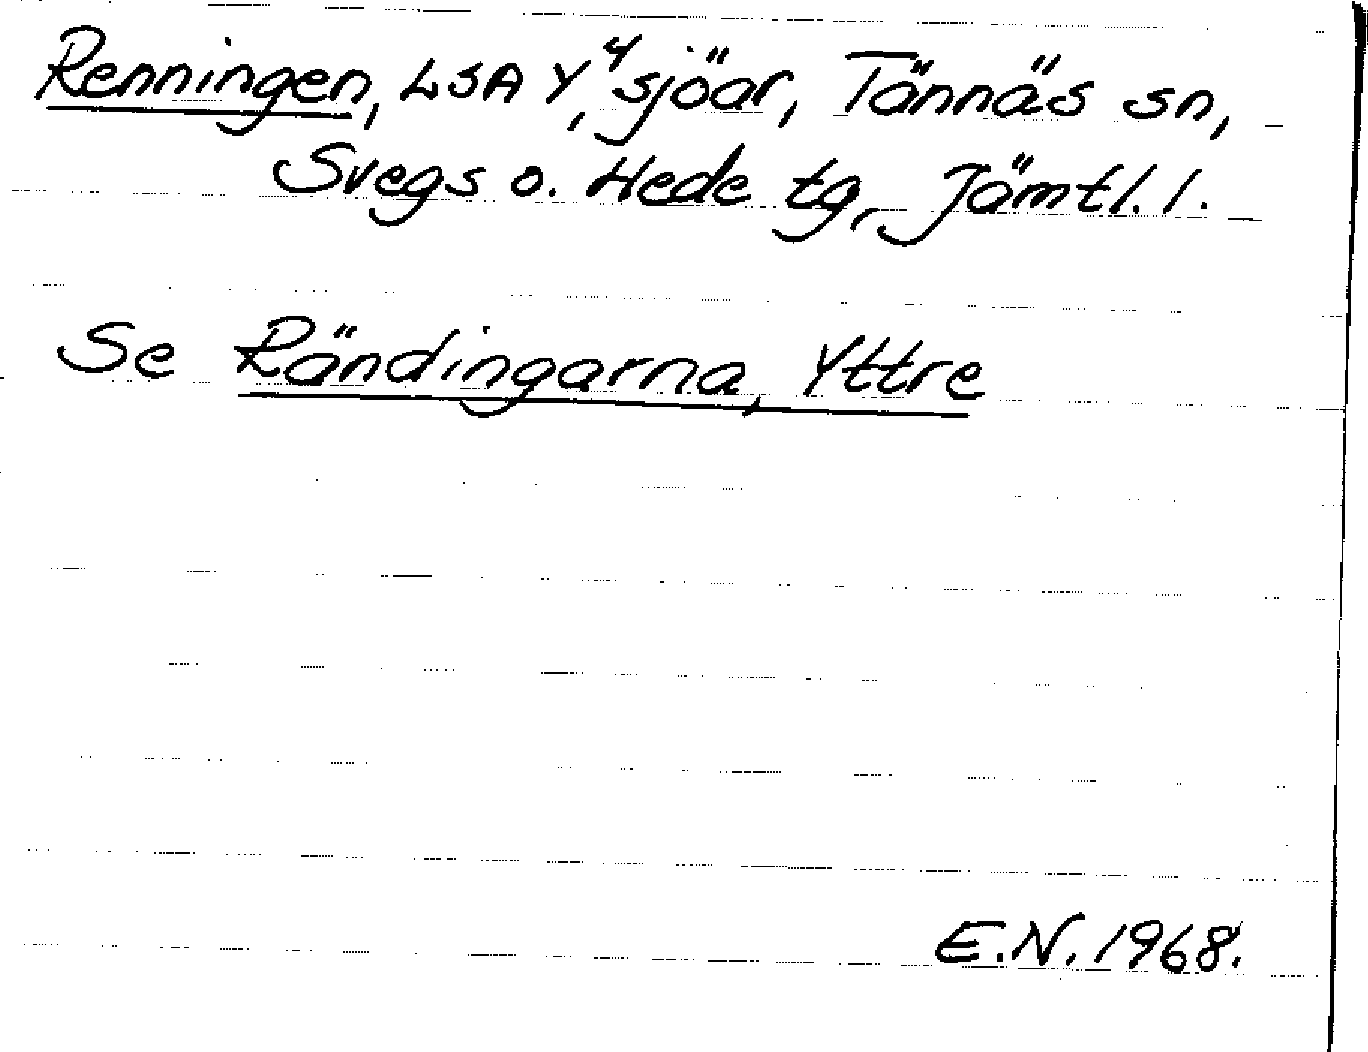 Renningen, LSA Y, 4 sjöar, Tännäs sn,
Svegs o. Hede tg, Jämtl. l.
Se Rändingarna, Yttre
E.N. 1968.